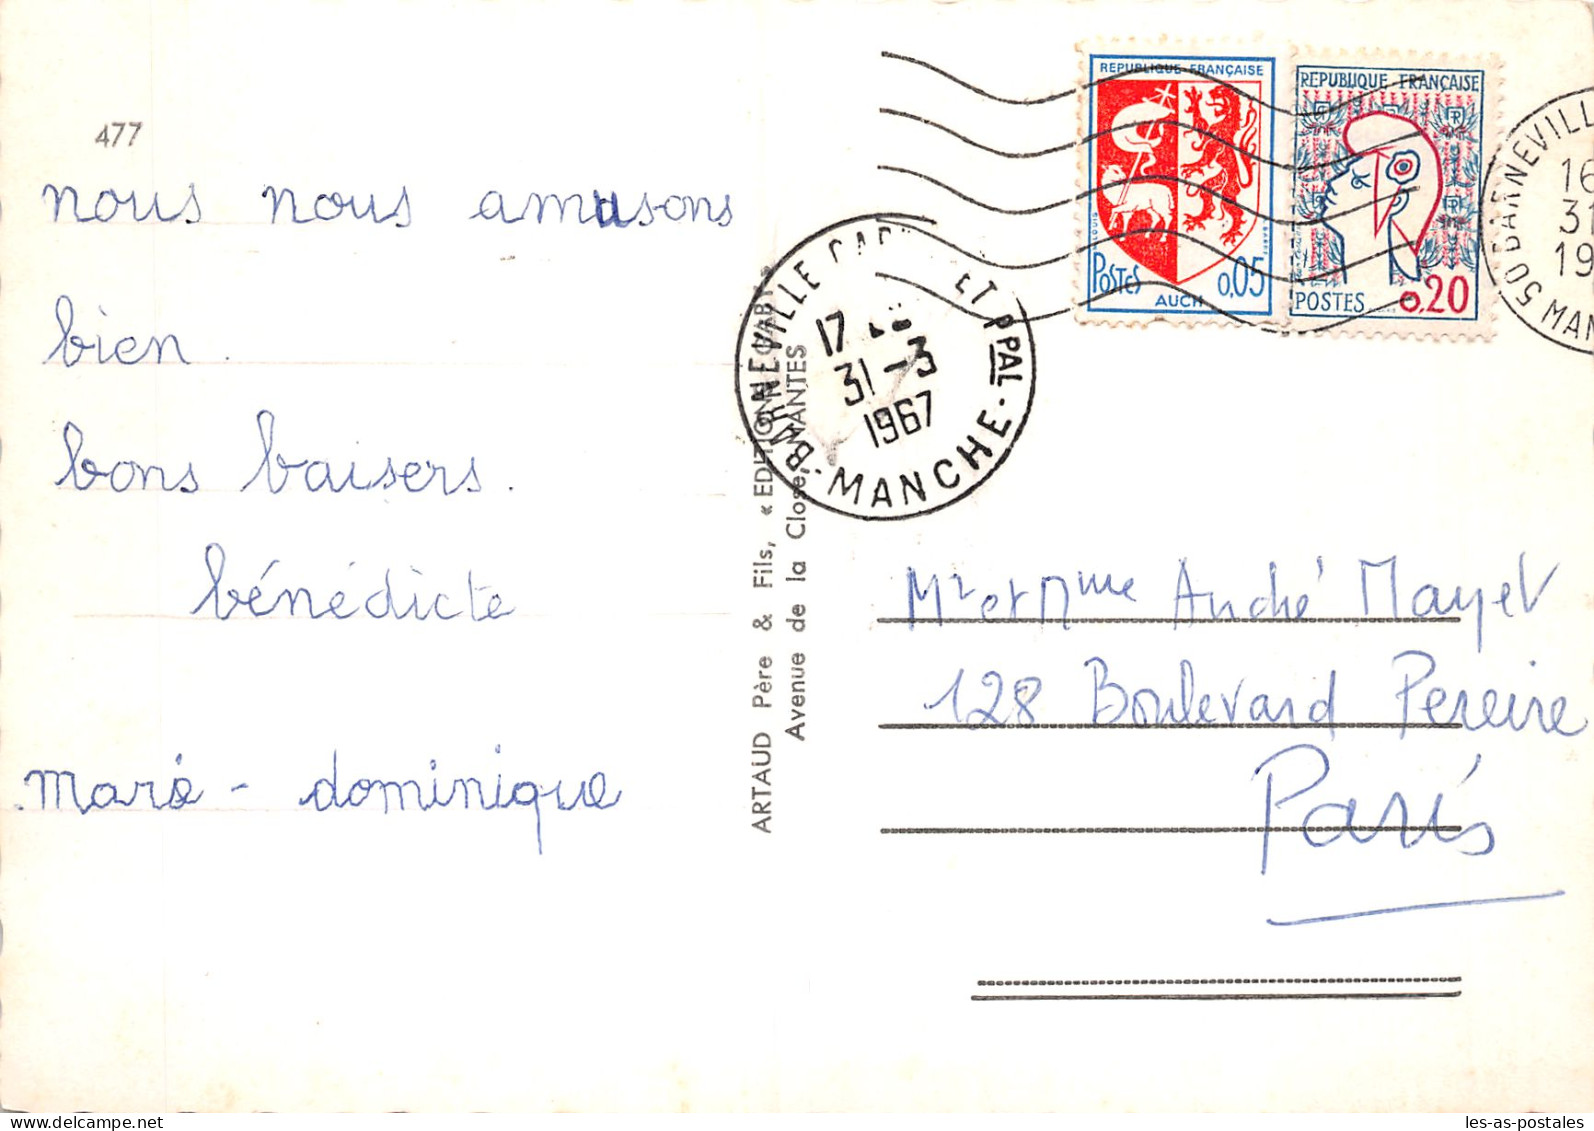 477
nous nous amusons
bien.
bons baisers.
bénédicte
marie - dominique
ARTAUD Père & Fils, « EDITIONS GABY »
Avenue de la Close, NANTES
BARNEVILLE ET PPAL
17
31-3
1967
MANCHE
REPUBLIQUE FRANÇAISE
POSTES
0,05
AUCH
REPUBLIQUE FRANÇAISE
POSTES
0,20
50 BARNEVILL
16
31
19
MAN
Mr et Mme André Mayet
128 Boulevard Pereire
Paris
les-as-postales